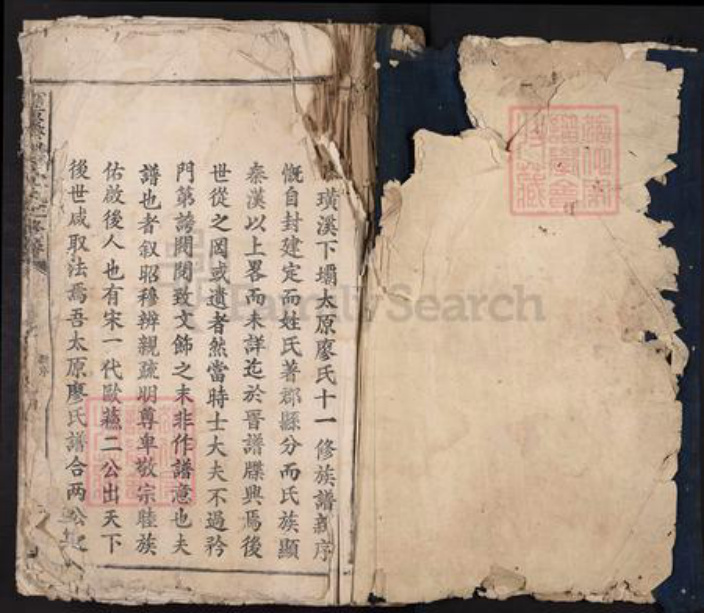 璜溪下壩太原廖氏十一修族譜新序
慨自封建定而姓氏著郡縣分而氏族顯
秦漢以上畧而未詳迄於晉譜牒興焉後
世從之罔或遺者然當時士大夫不過矜
門第誇閥閱致文飾之末非作譜意也夫
譜也者叙昭穆辨親疏明尊卑敬宗睦族
佑啟後人也有宋一代歐蘇二公出天下
後世咸取法焉吾太原廖氏譜合兩公
FamilySearch